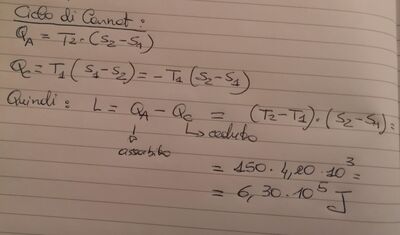 Ciclo di Carnot:
Q_A = T_2 · (S_2 - S_1)
Q_C = T_1 (S_1 - S_2) = - T_1 (S_2 - S_1)
Quindi: L = Q_A - Q_C = (T_2 - T_1) · (S_2 - S_1) =
assorbito ceduto
= 150 · 4,20 · 10^3 =
= 6,30 · 10^5 J